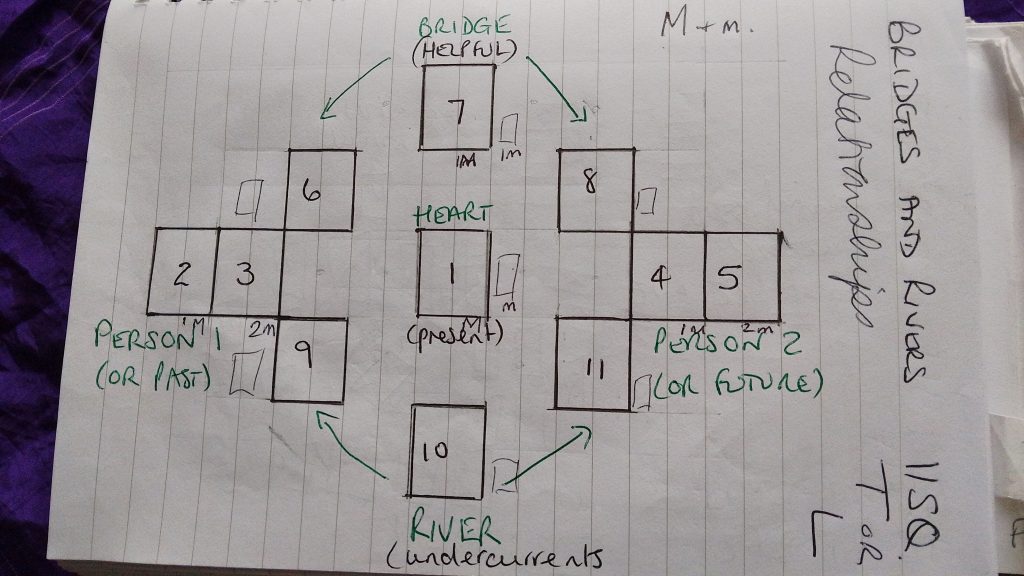 BRIDGE
(HELPFUL)
M + m.
7
1M 1m
6
8
HEART
2 3
1
m
4 5
M
(present)
1M 2m
PERSON 1
(OR PAST)
1M 2m
PERSON 2
(OR FUTURE)
9
11
10
RIVER
(undercurrents
BRIDGES AND RIVERS 11SQ.
Relationships T OR
L